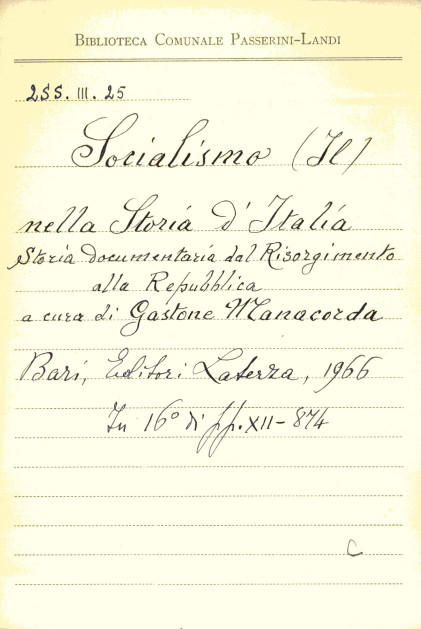 BIBLIOTECA COMUNALE PASSERINI-LANDI
2SS. III. 25
Socialismo (Il)
nella Storia d'Italia
Storia documentaria dal Risorgimento
alla Repubblica
a cura di Gastone Manacorda
Bari, Editori Laterza, 1966
In 16° di pp. XII-874
C